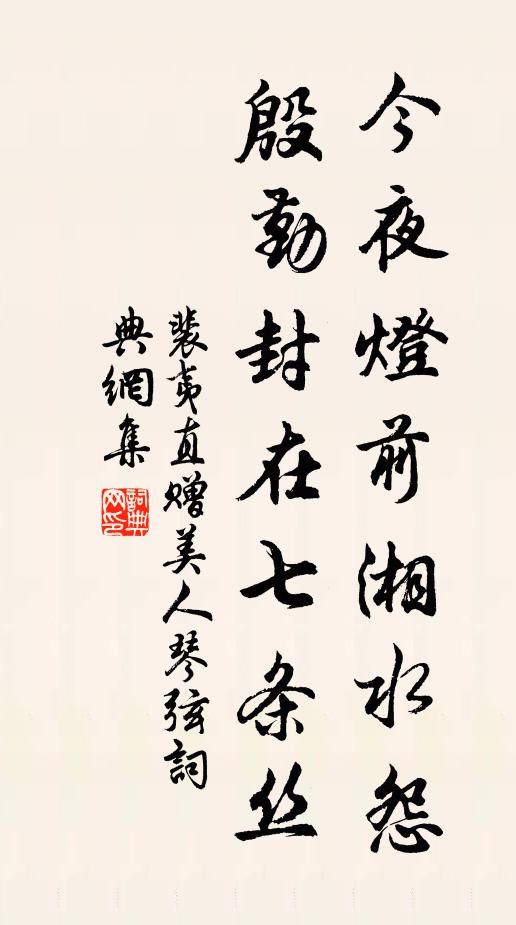 今夜燈前湘水怨
殷勤封在七条丝
裴夷直赠美人琴弦詞
典網集
詞典
网印